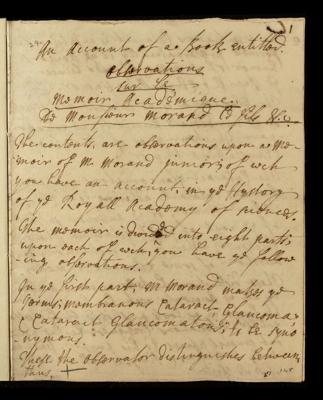 An Account of a Book entitled.
Observations
sur le
Memoir Academique.
De Monsieur Morand le fils &c.
The contents, are observations upon a Me-
moir of Mr Morand junior; of wch
you have an account, in ye Hystory
of ye Royall Academy of sciences.
The memoir is divided into eight parts;
upon each of wch; you have ye follow-
ing observations.
In ye first part, Mr Morand makes ye
terms; membranous Cataract, Glaucoma
& Cataract Glaucomatous; to be syno-
nymous.
These the observator distinguishes between
thus.